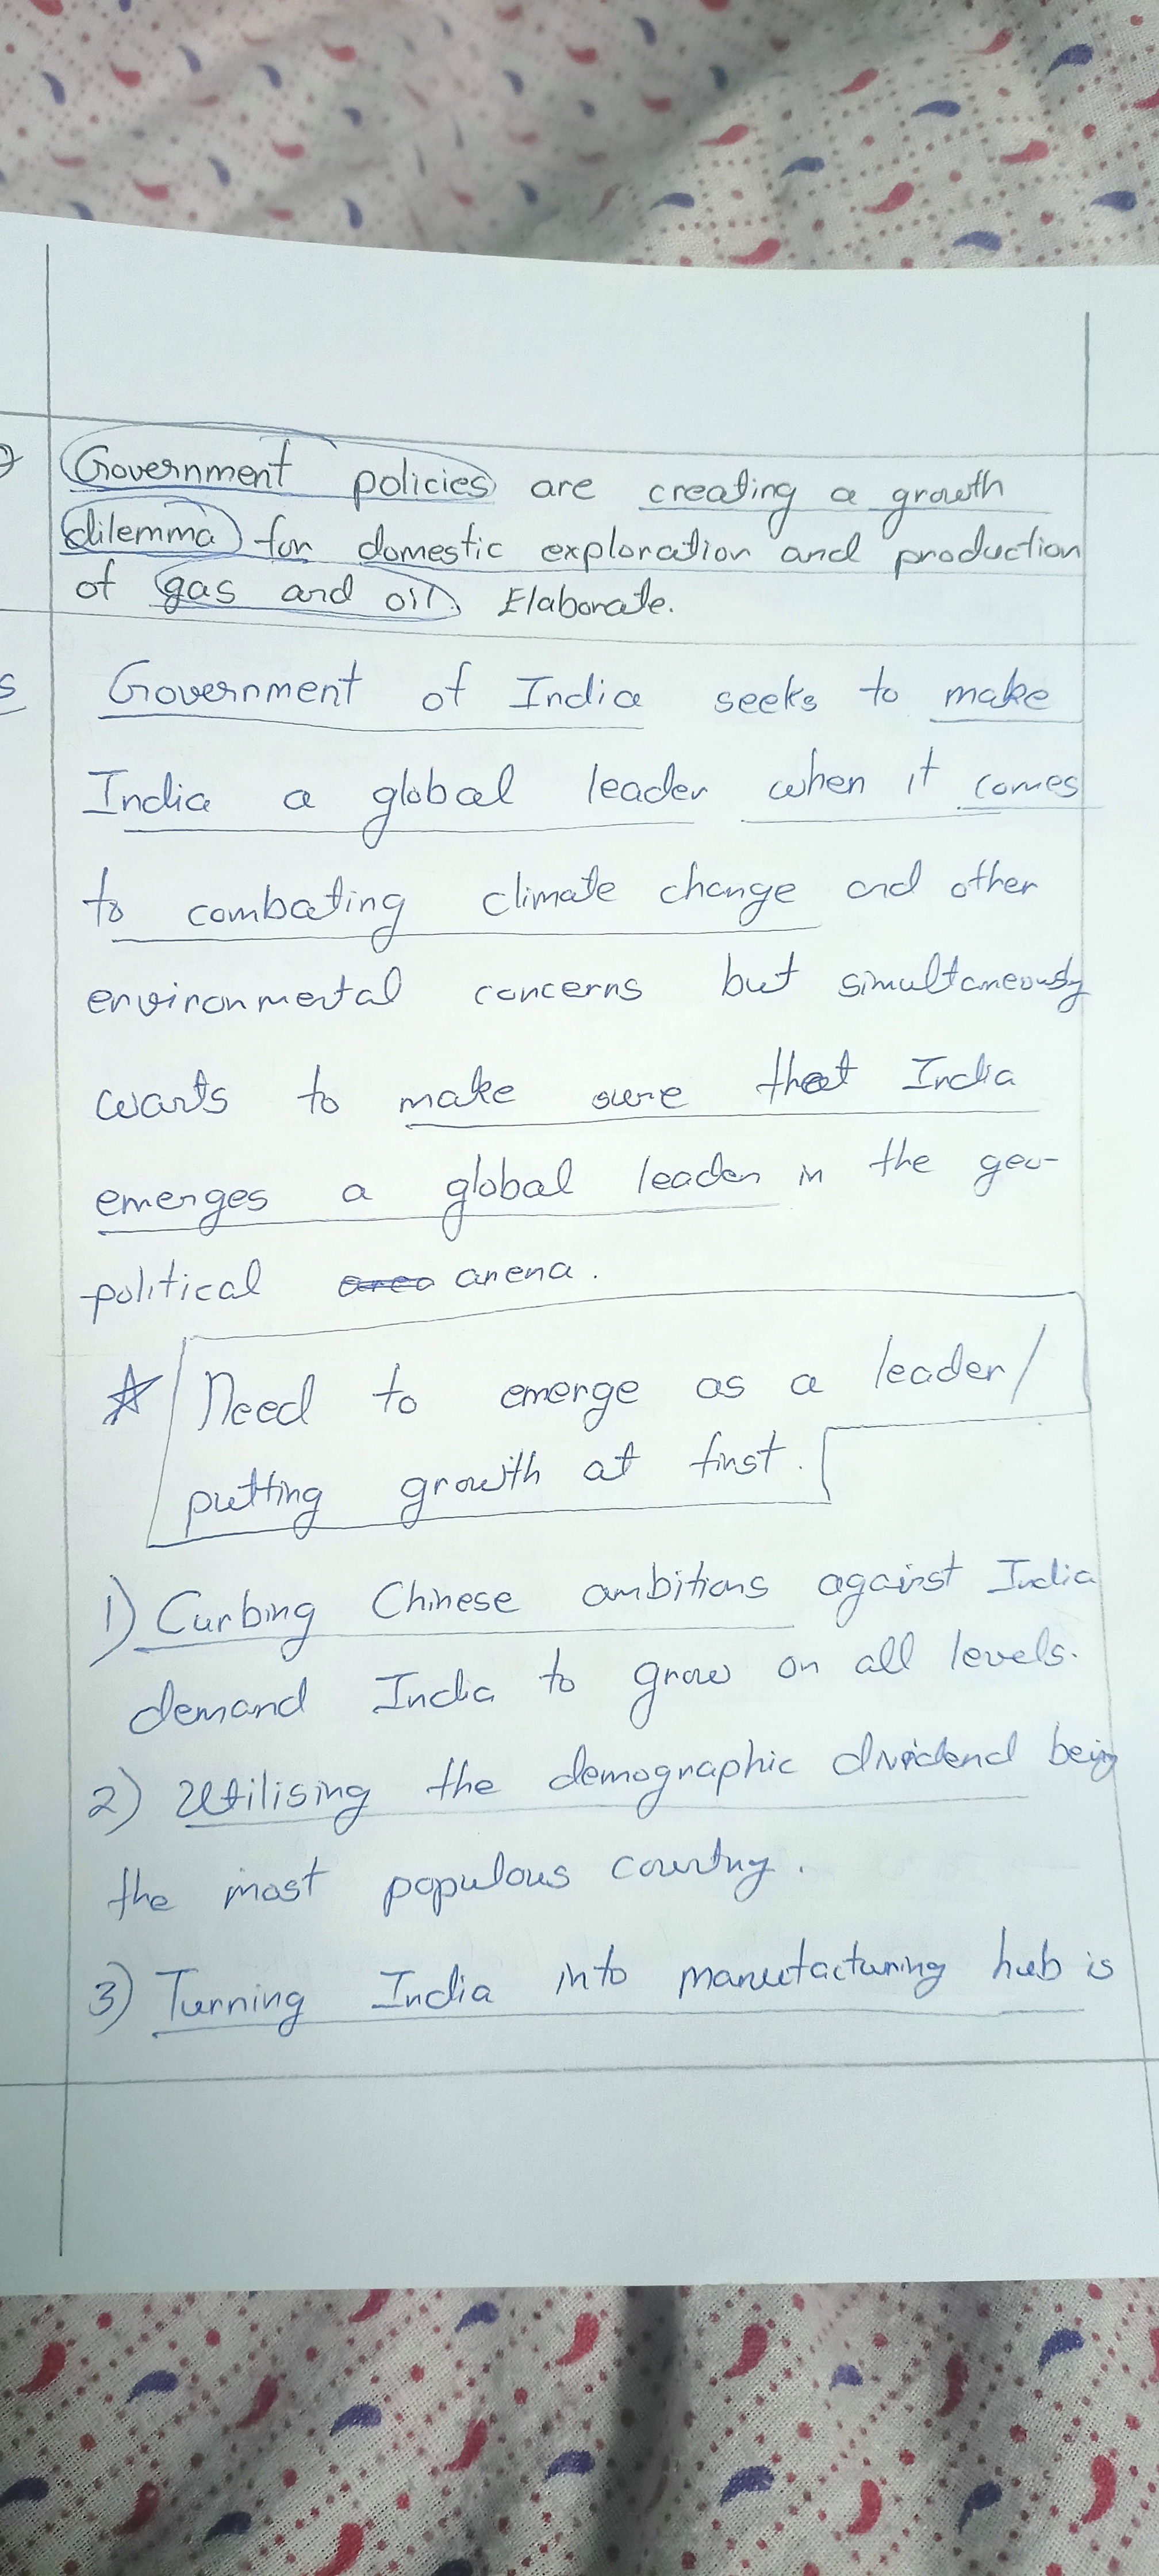 Government policies are creating a growth
dilemma for domestic exploration and production
of gas and oil. Elaborate.
Government of India seeks to make
India a global leader when it comes
to combating climate change and other
environmental concerns but simultaneously
wants to make sure that India
emerges a global leader in the geo-
political arena.
Need to emerge as a leader/
putting growth at first.
1) Curbing Chinese ambitions against India
demand India to grow on all levels.
2) Utilising the demographic dividend being
the most populous country.
3) Turning India into manufacturing hub is